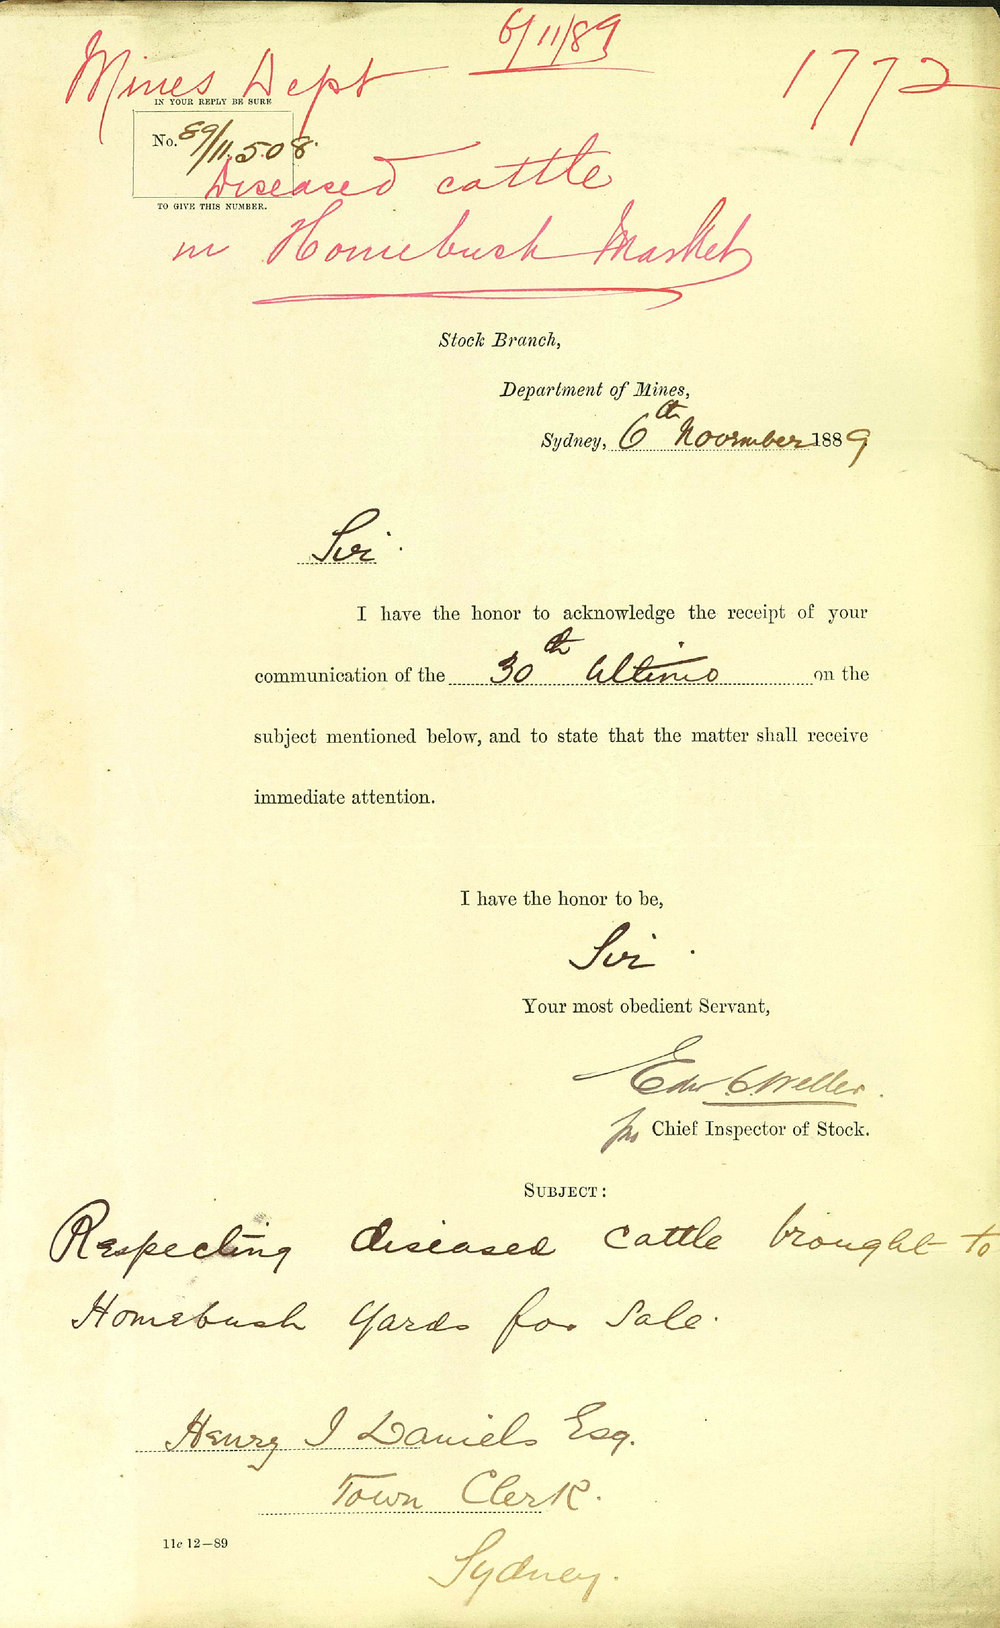 6/11/89
Mines Dept 1772
IN YOUR REPLY BE SURE
No. 89/11.508.
Diseased cattle
TO GIVE THIS NUMBER.
in Homebush Market
Stock Branch,
Department of Mines,
Sydney, 6th November 1889
Sir.
I have the honor to acknowledge the receipt of your
communication of the 30th Ultimo on the
subject mentioned below, and to state that the matter shall receive
immediate attention.
I have the honor to be,
Sir.
Your most obedient Servant,
Edw
Chief Inspector of Stock.
SUBJECT:
Respecting diseased cattle brought to
Homebush Yards for Sale.
Henry J Daniels Esq.
Town Clerk.
11c 12—89
Sydney.